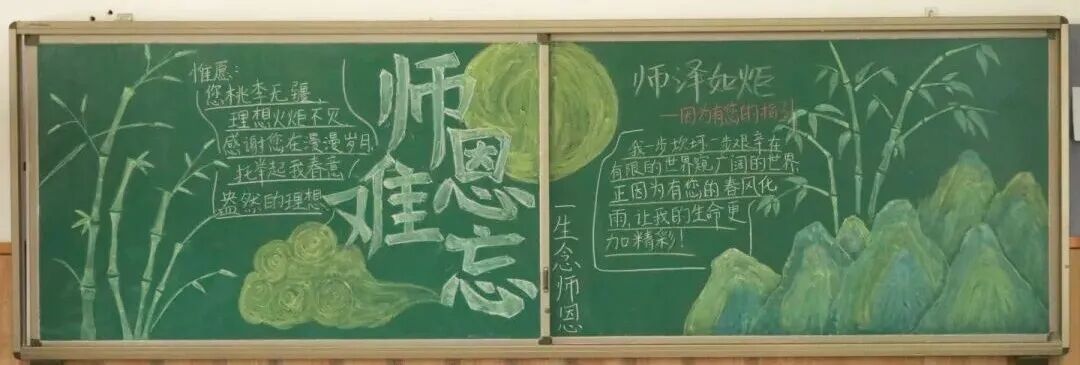 惟愿:
您桃李无疆、
理想火炬不灭
感谢您在漫漫岁月
托举起我春意
盎然的理想
师恩难忘
一生念师恩
师泽如炬
一因为有您的指引
我一步坎坷一步艰辛在
有限的世界窥广阔的世界
正因为有您的春风化
雨,让我的生命更
加精彩!